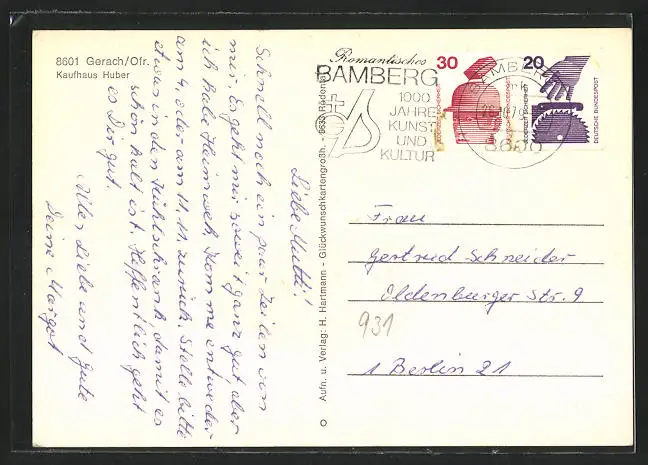 8601 Gerach/Ofr.
Kaufhaus Huber
Liebe Mutti!
Schnell noch ein paar Zeilen von
mir. Es geht mir soweit ganz gut, aber
ich habe Heimweh. Komme entweder
am 4. oder am 11. 11. zurück. Stelle bitte
etwas in den Kühlschrank damit es
schön kalt ist. Hoffentlich geht
es Dir gut.
Alles Liebe und Gute
Deine Margot
Aufn. u. Verlag: H. Hartmann - Glückwunschkartengroßh. - 8633 Rödental
Romantisches
BAMBERG
1000
JAHRE
KUNST
UND
KULTUR
BAMBERG
8600
30
20
DEUTSCHE BUNDESPOST
Frau
Gertrud Schneider
Oldenburger Str. 9
931
1 Berlin 21